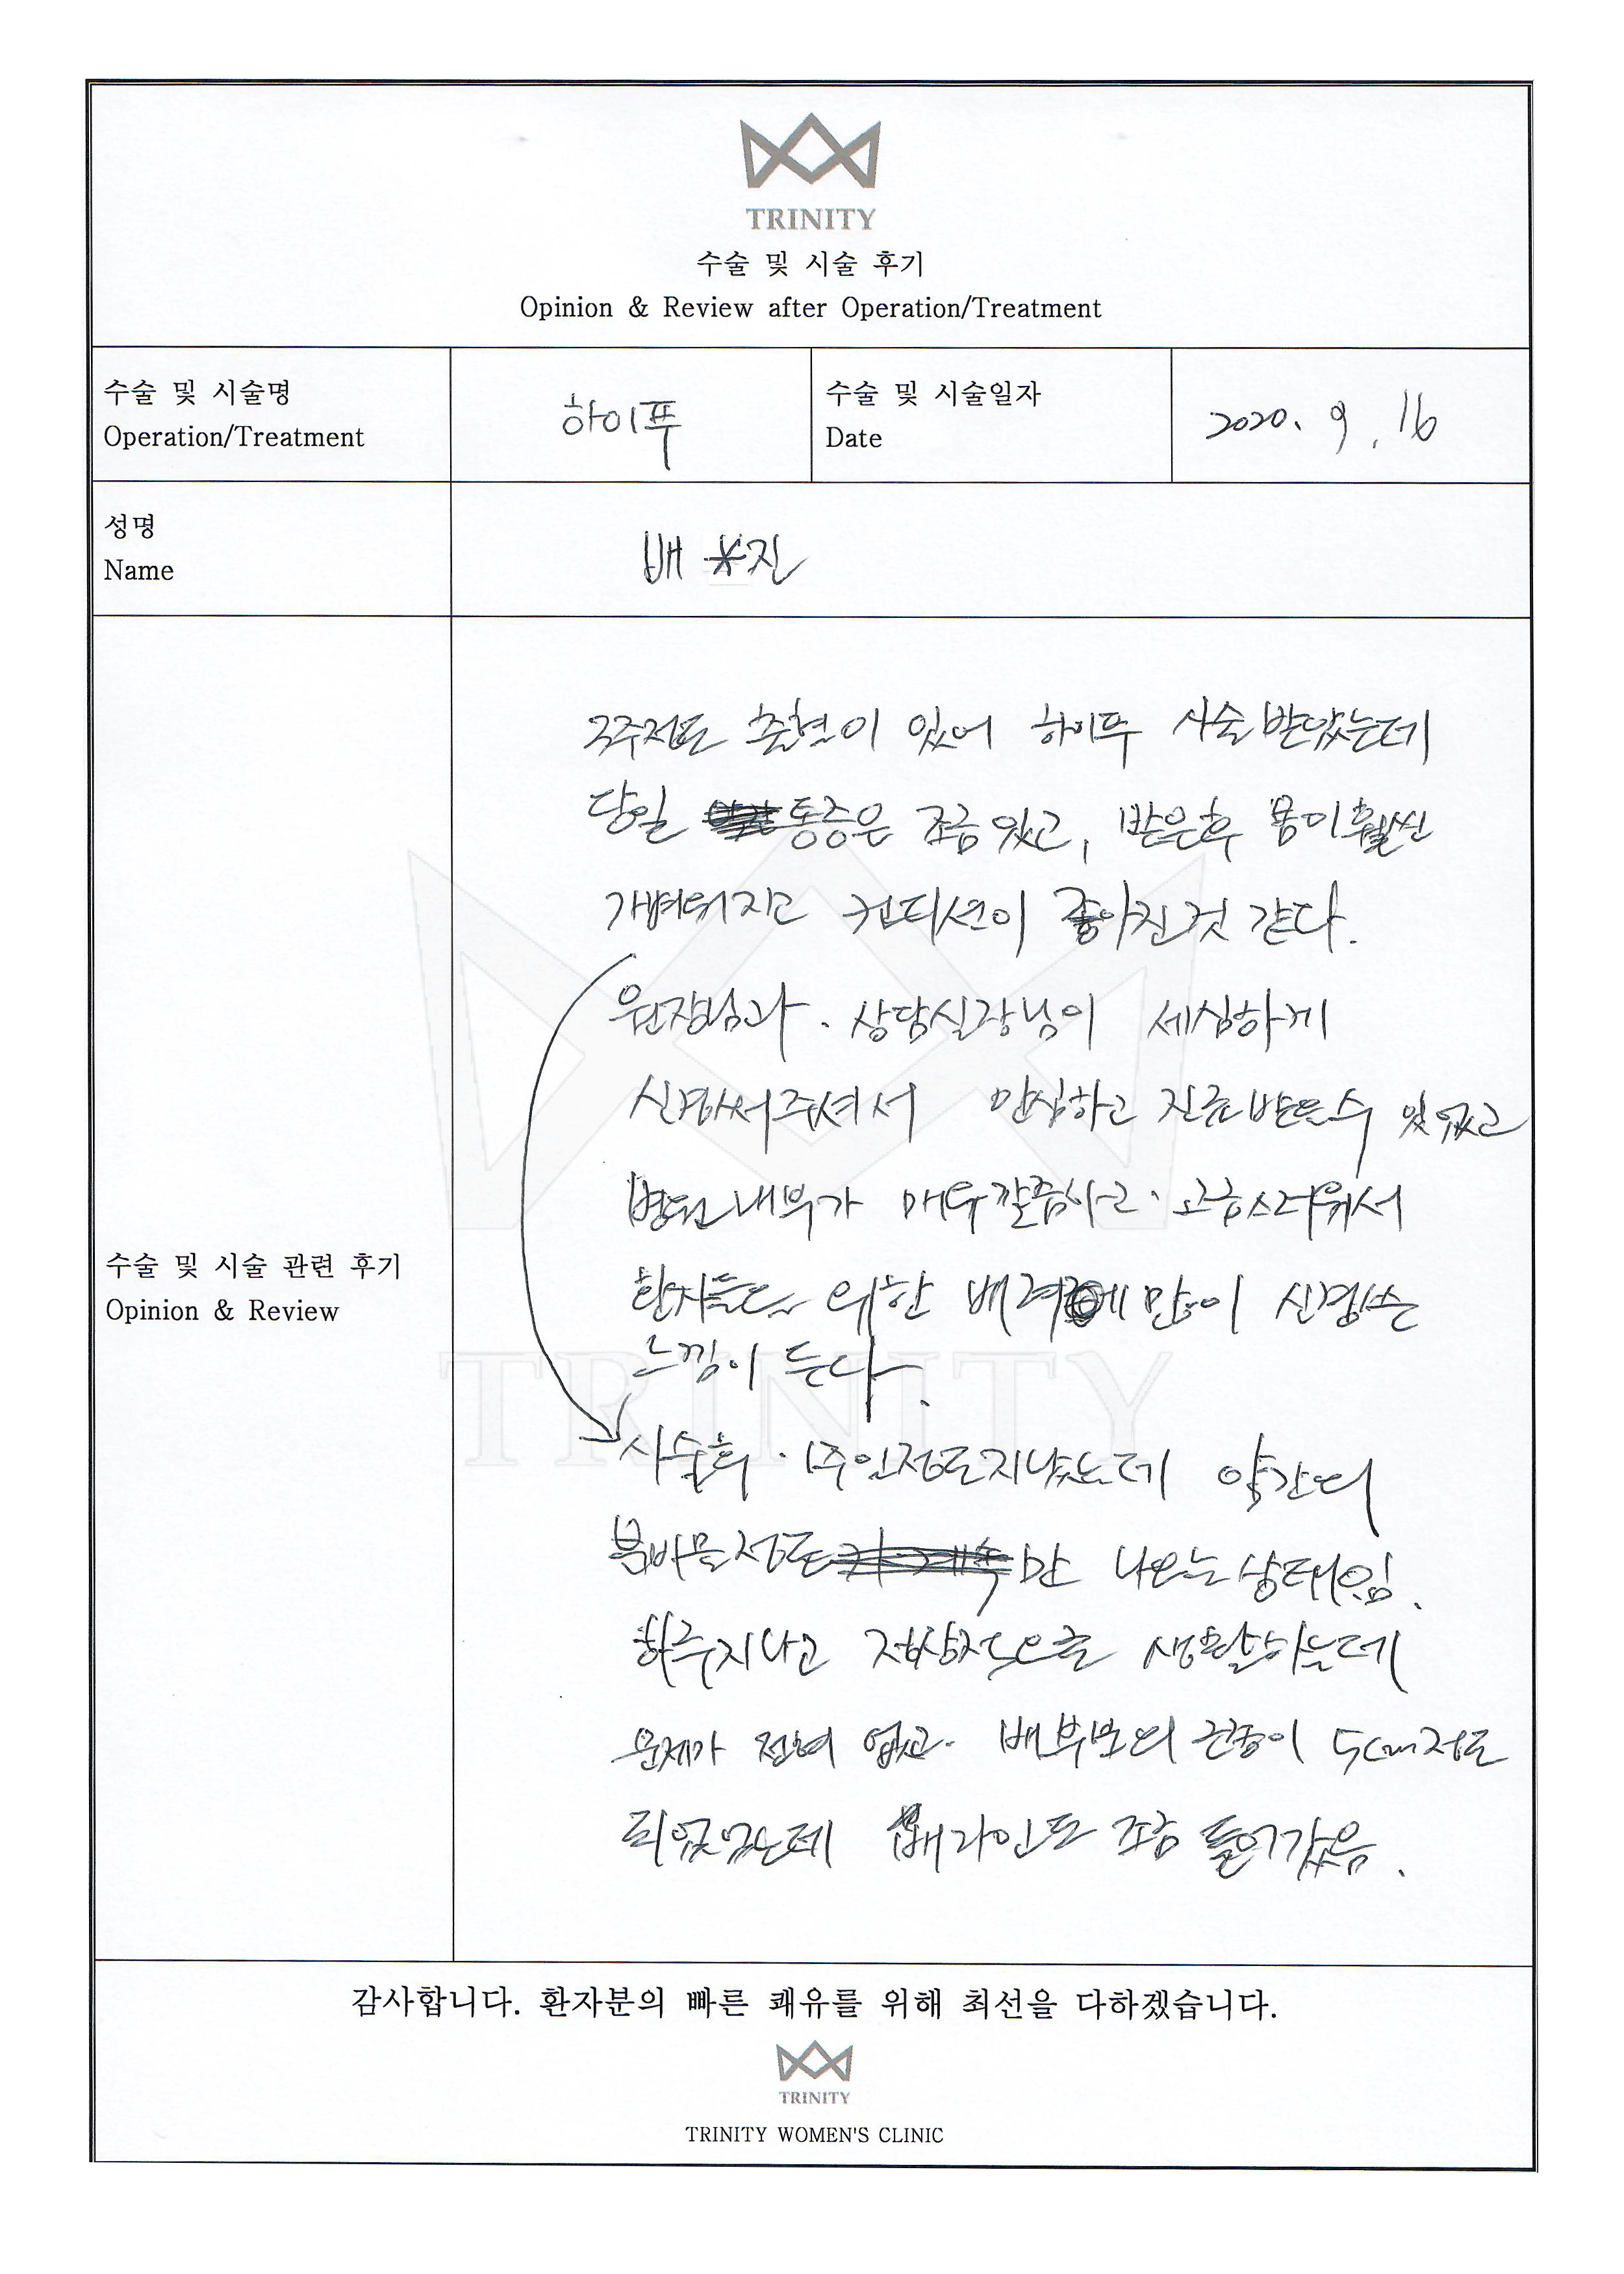 TRINITY
수술 및 시술 후기
Opinion & Review after Operation/Treatment
수술 및 시술명
Operation/Treatment
하이푸
수술 및 시술일자
Date
2020. 9. 16
성명
Name
배 *진
수술 및 시술 관련 후기
Opinion & Review
2주정도 출혈이 있어 하이푸 시술받았는데
당일 통증은 조금있고, 받은후 몸이훨씬
가벼워지고 컨디션이 좋아진것 같다.
원장님과. 상담실장님이 세심하게
신경써주셔서 안심하고 진료받을수 있었고
병원내부가 매우깔끔하고. 고급스러워서
환자들을 위한 배려에 많이 신경쓰는
느낌이 든다.
시술후. 1주일정도지났는데 약간의
분비물정도만 나오는상태임.
하루지나고 정상적으로 생활하는데
문제가 전혀 없고. 배부분의 근종이 5cm정도
되었었는데 배라인도 조금 들어갔음.
TRINITY
감사합니다. 환자분의 빠른 쾌유를 위해 최선을 다하겠습니다.
TRINITY
TRINITY WOMEN'S CLINIC